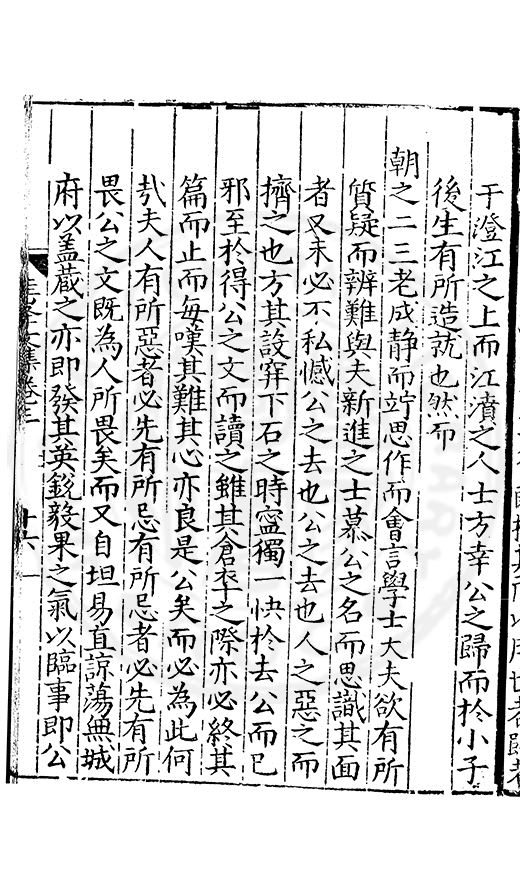 于澄江之上而江濆之人士方幸公之歸而於小子
後生有所造就也然而
朝之二三老成静而竚思作而會言學士大夫欲有所
質疑而辨難與夫新進之士慕公之名而思識其面
者又未必不私憾公之去也公之去也人之惡之而
擠之也方其設穽下石之時寧獨一快於去公而已
邪至於得公之文而讀之雖其倉卒之際亦必終其
篇而止而每嘆其難其心亦良是公矣而必為此何
㢤夫人有所惡者必先有所忌有所忌者必先有所
畏公之文既為人所畏矣而又自坦易直諒蕩無城
府以盖蔵之亦即發其英鋭毅果之氣以臨事即公
文集卷三
十六